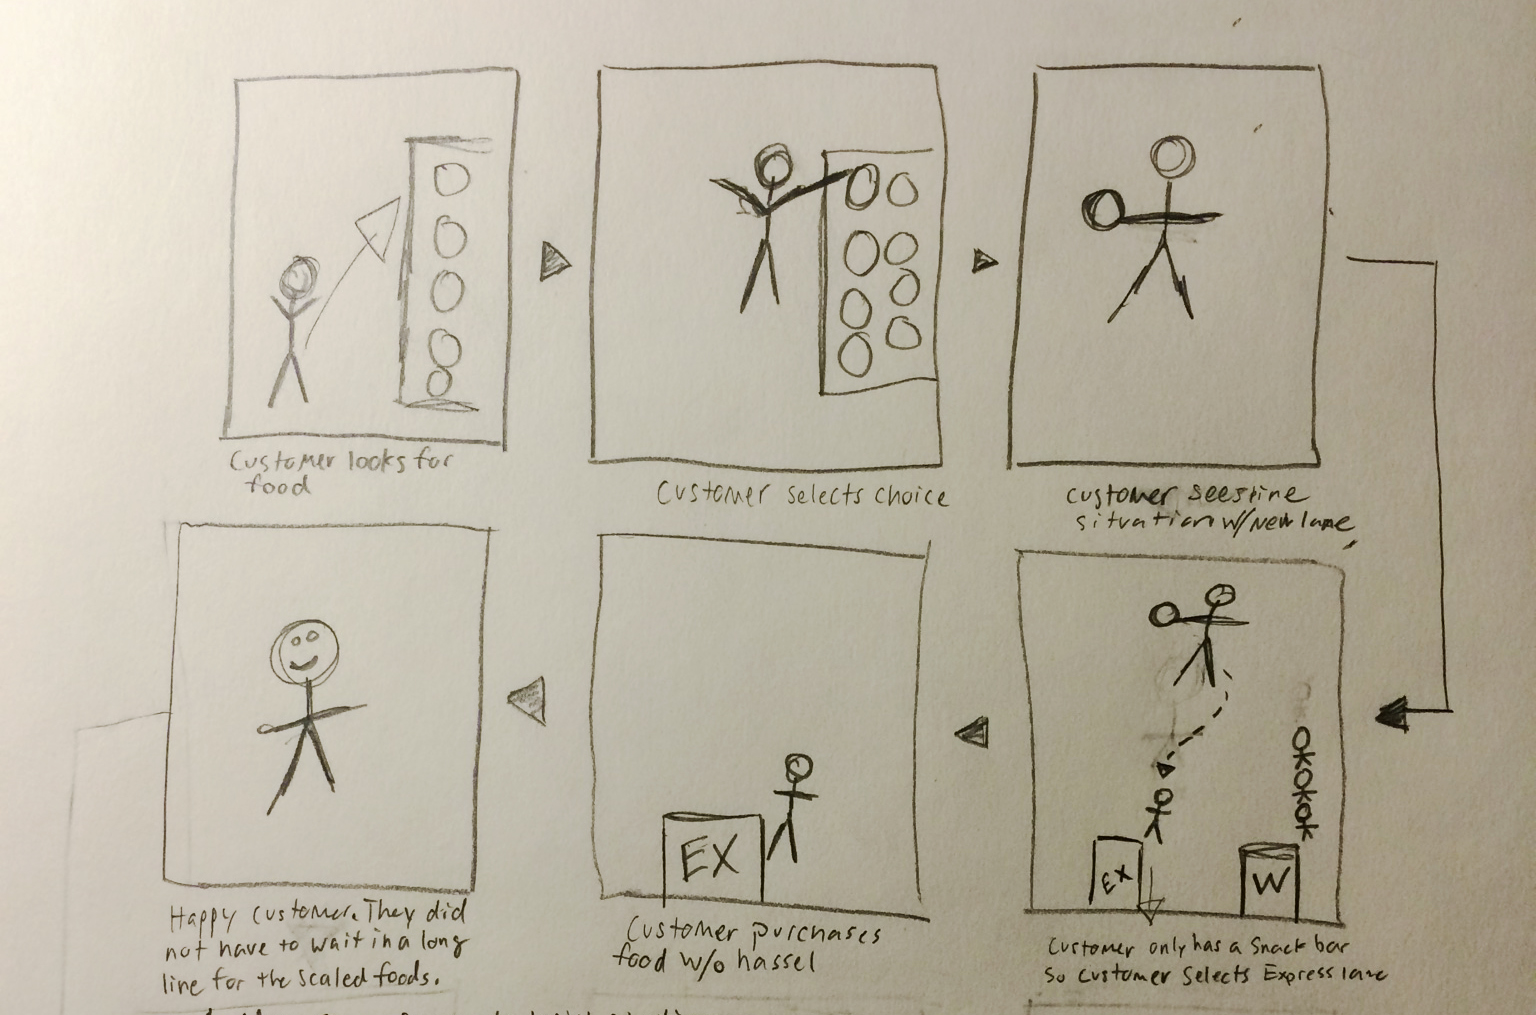 Customer looks for
food
Customer selects choice
Customer sees line
situation w/ new lane
EX
W
Customer only has a snack bar
so customer selects Express lane
EX
Customer purchases
food w/o hassel
Happy customer. They did
not have to wait in a long
line for the scaled foods.